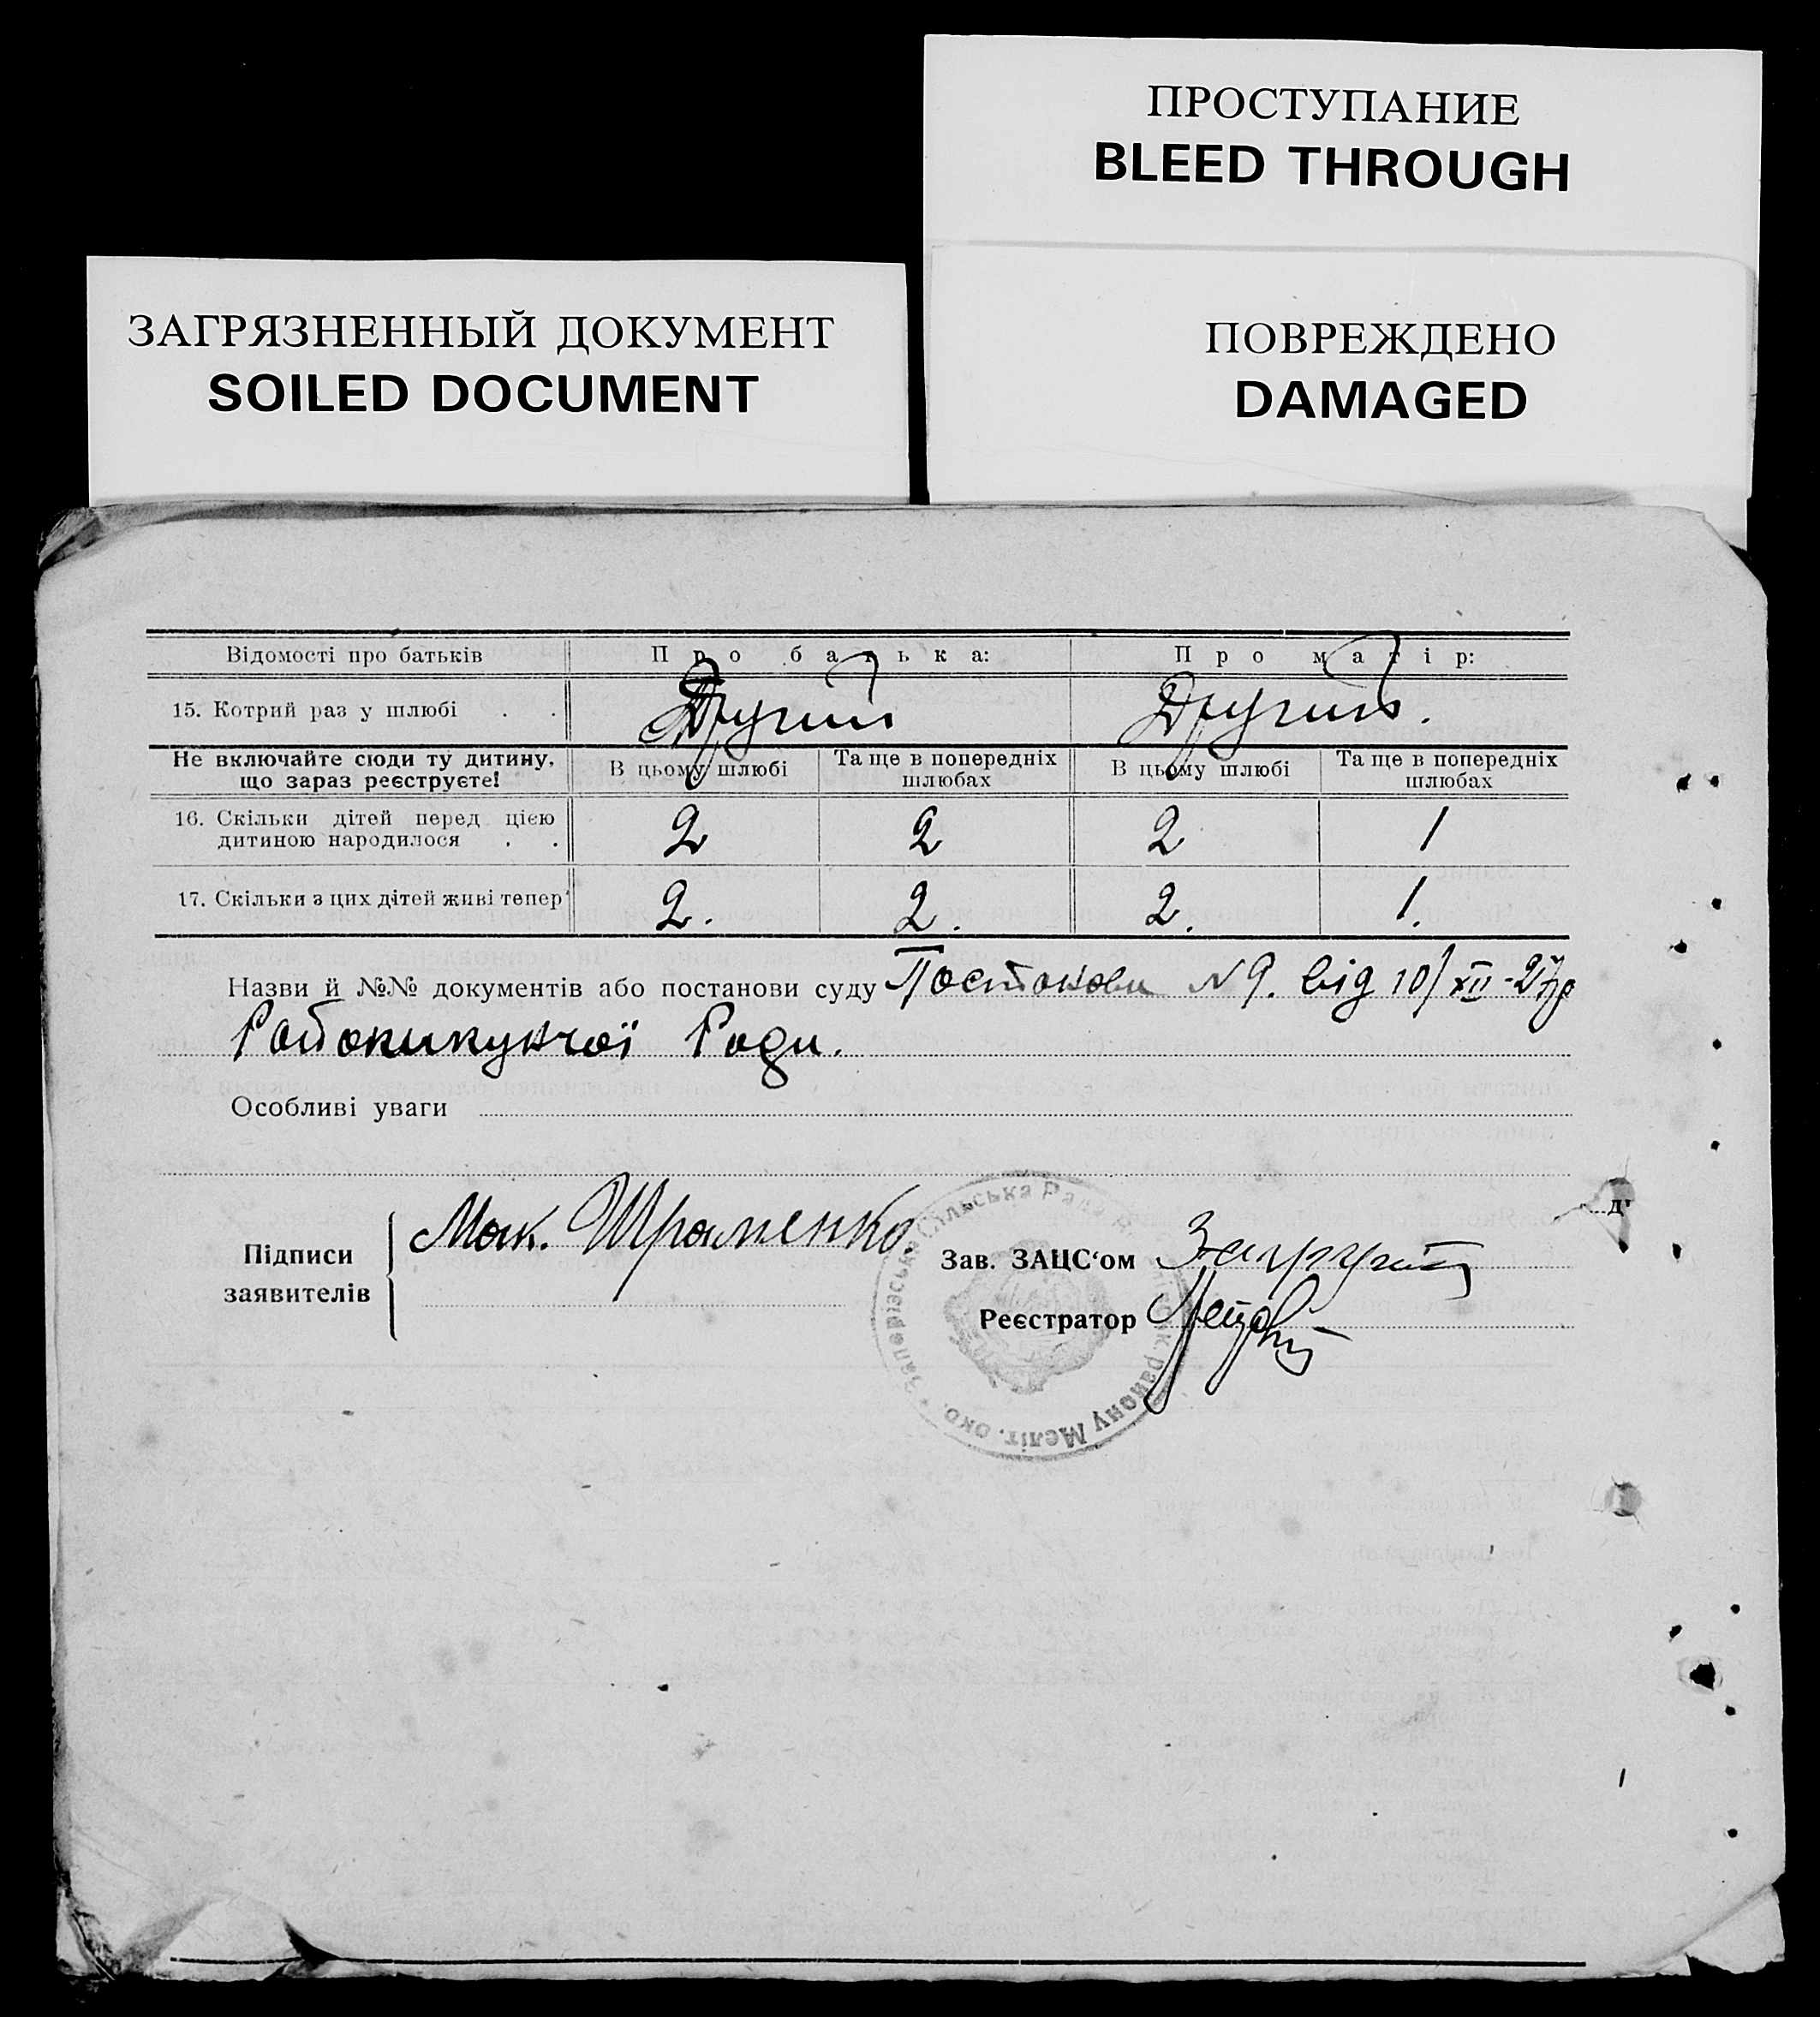 ПРОСТУПАНИЕ
BLEED THROUGH
ЗАГРЯЗНЕННЫЙ ДОКУМЕНТ
SOILED DOCUMENT
ПОВРЕЖДЕНО
DAMAGED
Відомості про батьків Про батька: Про матір:
15. Котрий раз у шлюбі . . Другий Другий.
Не включайте сюди ту дитину, що зараз реєструєте! В цьому шлюбі Та ще в попередніх шлюбах В цьому шлюбі Та ще в попередніх шлюбах
16. Скільки дітей перед цією
дитиною народилося . . 2 2 2 1
17. Скільки з цих дітей живі тепер 2. 2. 2. 1.
Назви й №№ документів або постанови суду Постанови N 9. від 10/XII-27р
Ради.
Особливі уваги
Підписи
заявителів
Мак. Шраменко.
Зав. ЗАЦС‘ом
Реєстратор
Сільська Рада району Меліт. окр.